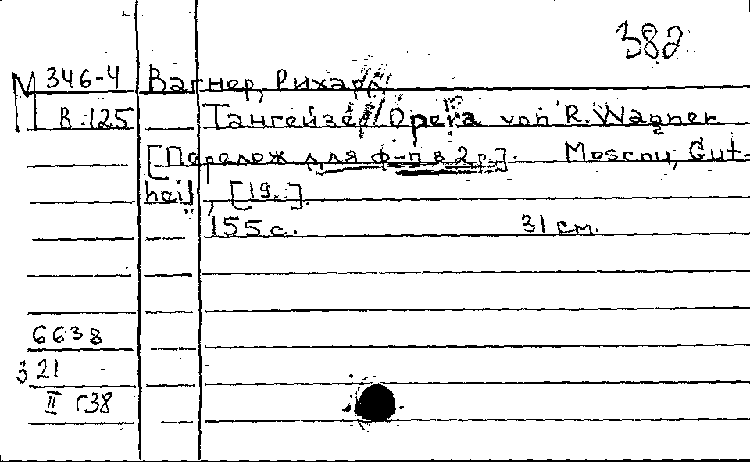 382
М 346-4 Вагнер, Рихард
В-125 Тангейзер. Opera von R. Wagner
[Перелож для ф-п в 2 р.]. Moscou, Gut-
heil, [19..].
155 с. 31 см.
6638
3 21
II г38